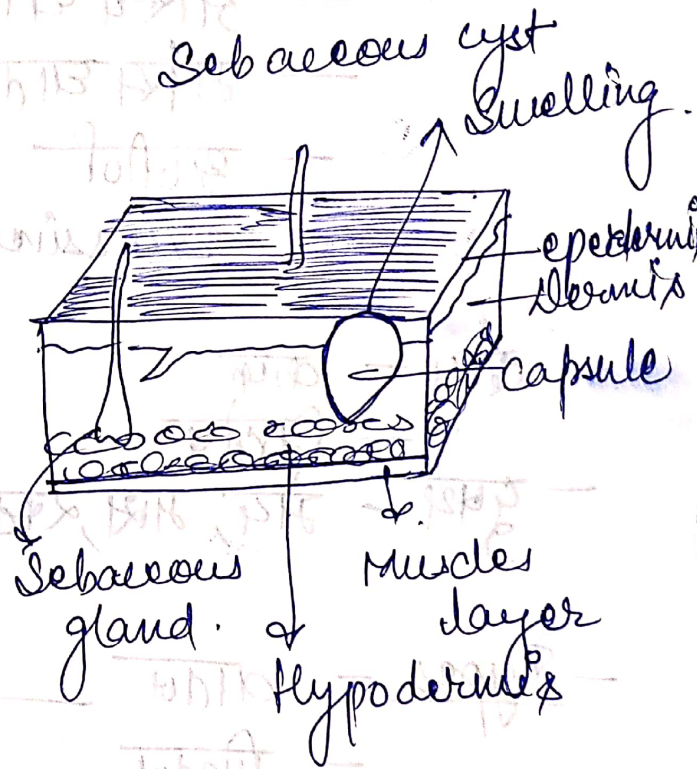 Sebaceous cyst
Swelling.
epidermis
Dermis
capsule
Sebaceous
gland.
Muscles
layer
Hypodermis